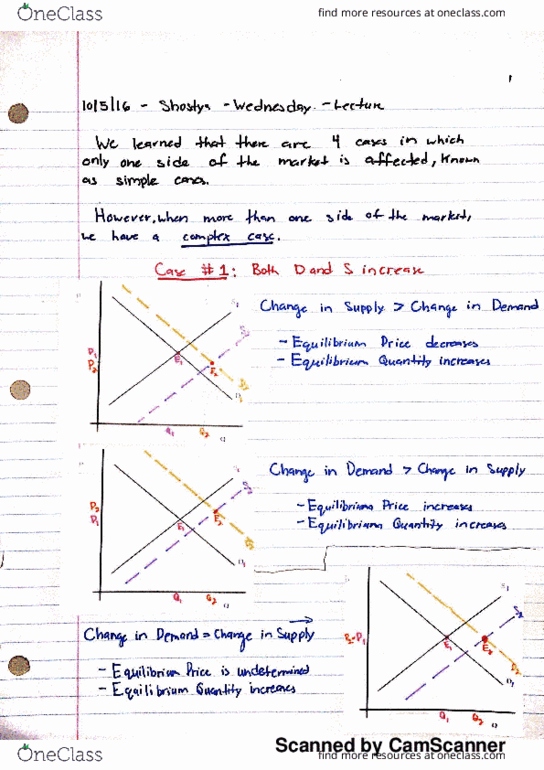 OneClass
find more resources at oneclass.com
1
10/5/16 - Shostya - Wednesday - Lecture
We learned that there are 4 cases in which
only one side of the market is affected, known
as simple cases.
However, when more than one side of the market,
we have a complex case.
Case #1: Both D and S increase
Change in Supply > Change in Demand
- Equilibrium Price decreases
- Equilibrium Quantity increases
S1
S2
P1
P2
E1
E2
D2
D1
Q1
Q2
Q
Change in Demand > Change in Supply
- Equilibrium Price increases
- Equilibrium Quantity increases
S1
S2
P2
P1
E1
E2
D2
D1
Q1
Q2
Q
Change in Demand = Change in Supply
- Equilibrium Price is undetermined
- Equilibrium Quantity increases
S1
S2
P2=P1
E1
E2
D2
D1
Q1
Q2
Q
Scanned by CamScanner
OneClass
find more resources at oneclass.com